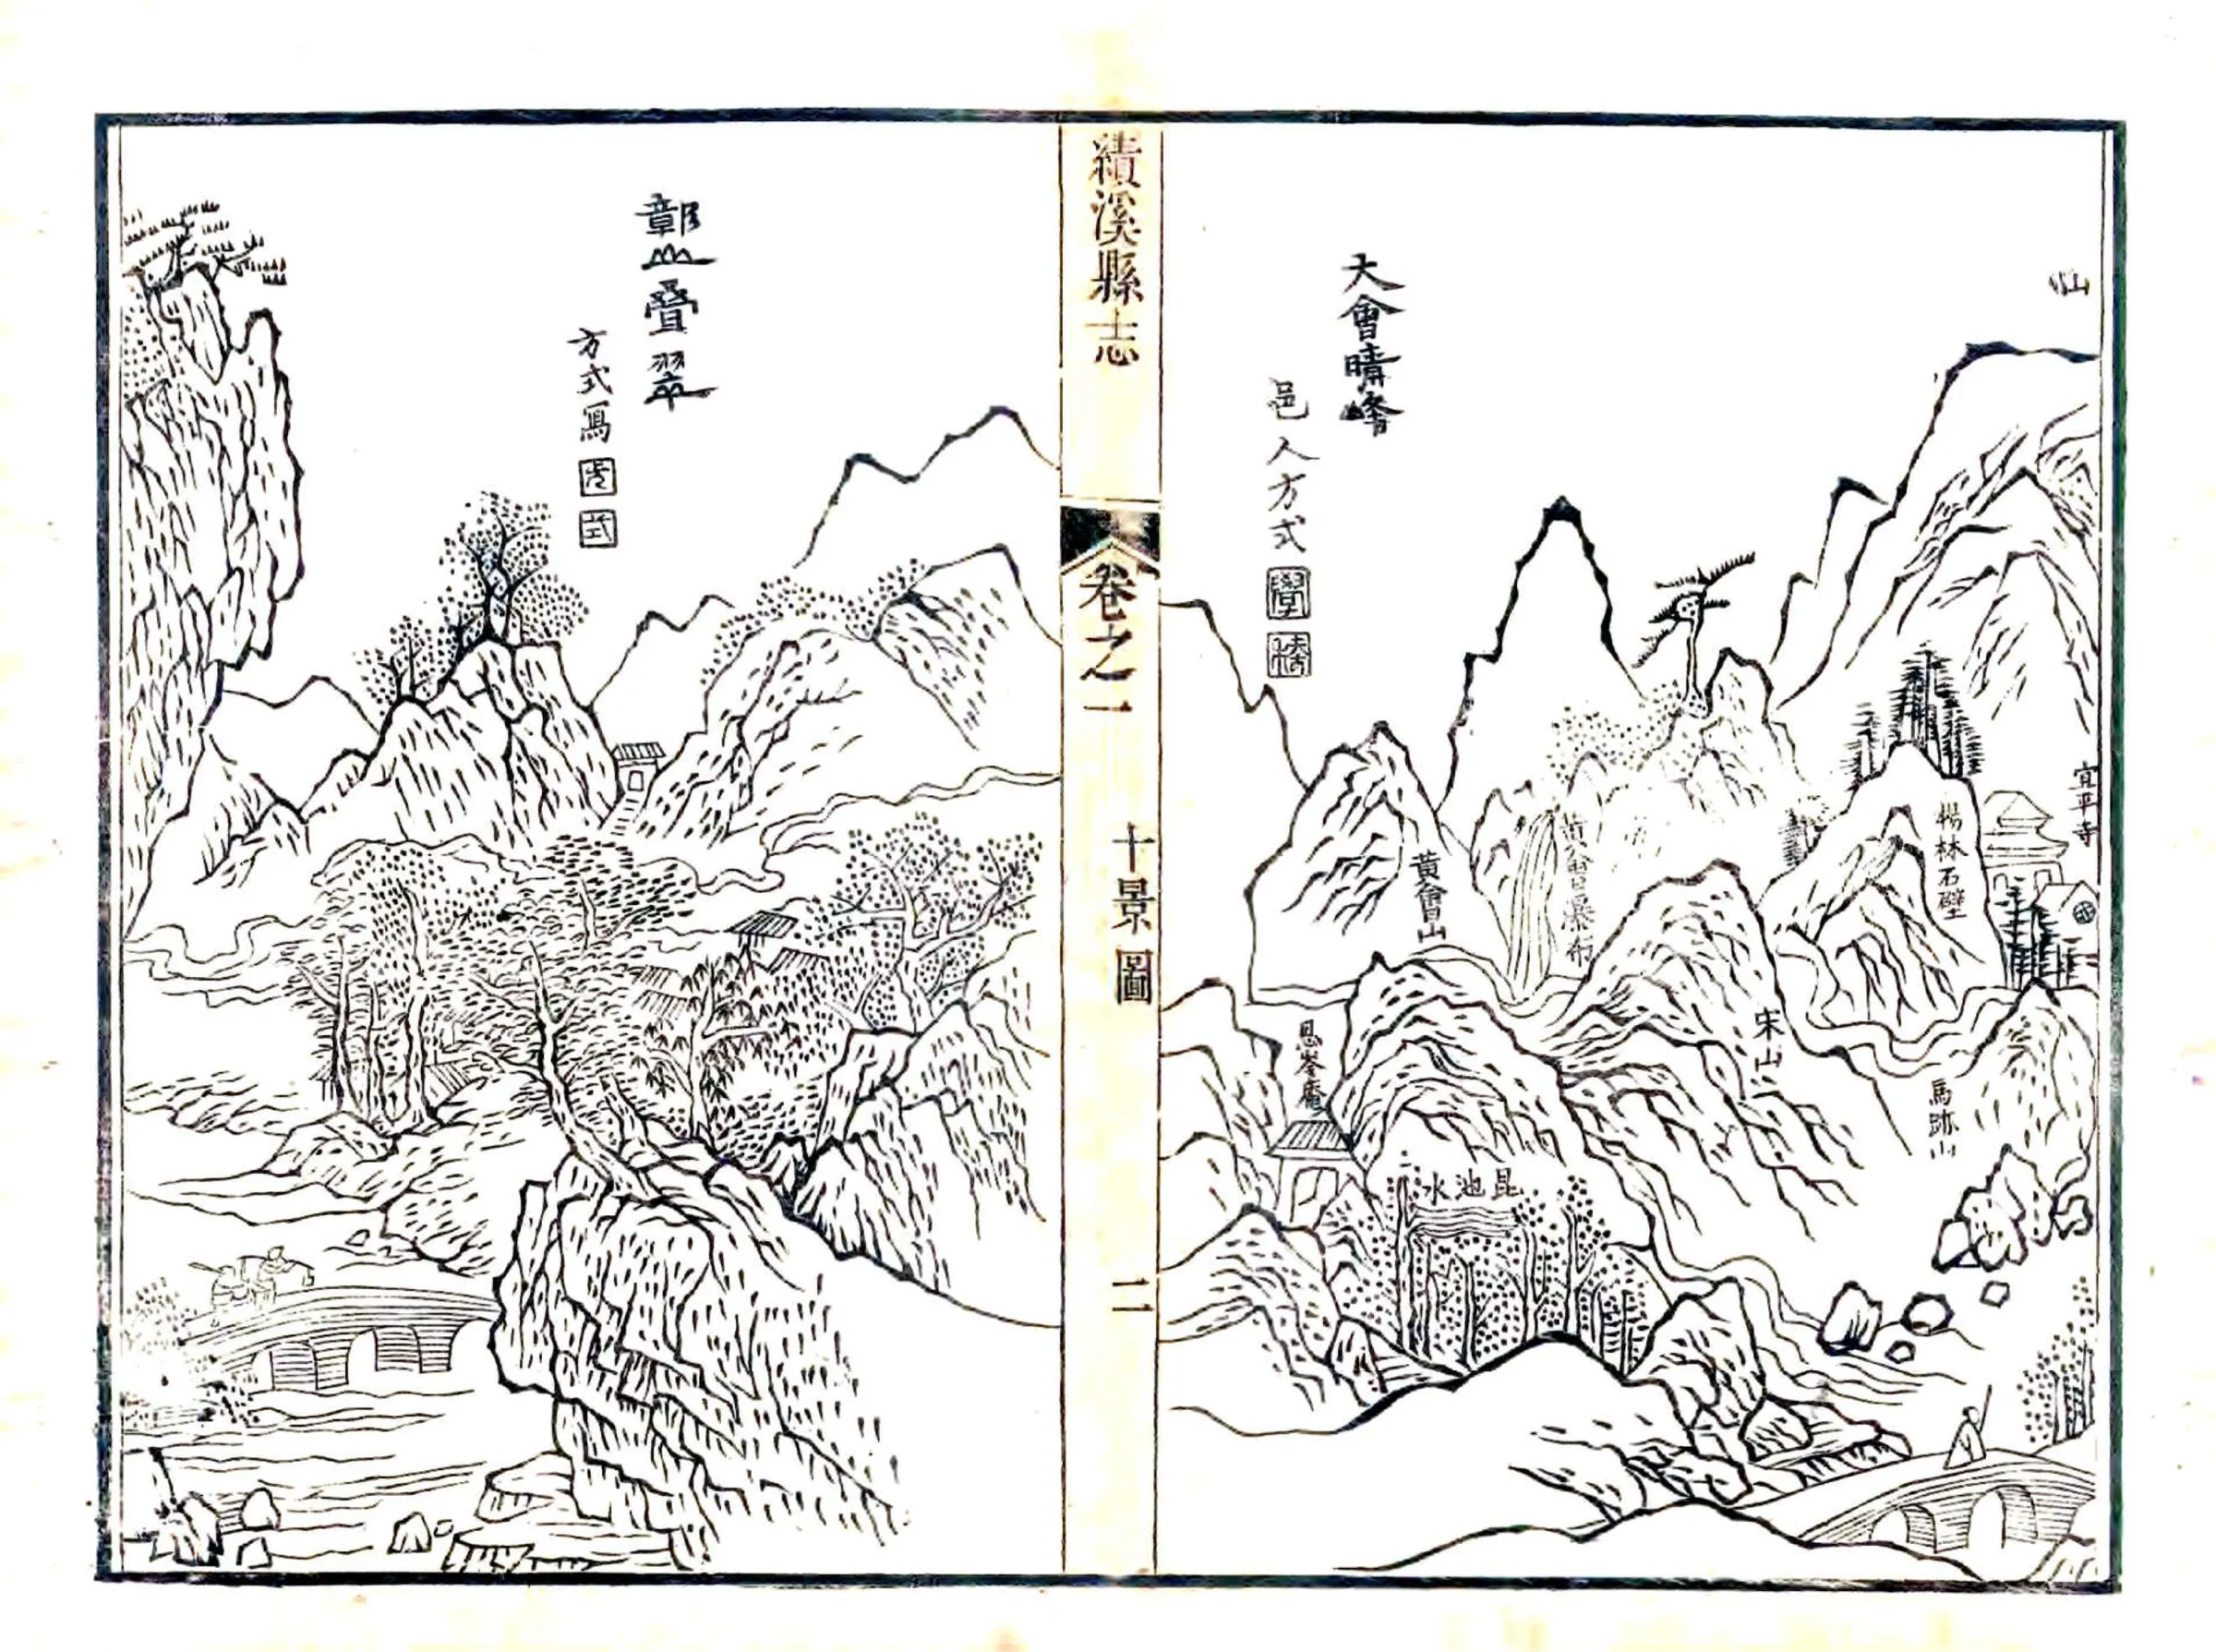 大會晴峰
邑人方式
山
宜平寺
楊林石壁
馬跡山
宋山
黃會瀑布
黃會山
思峯庵
昆池水
績溪縣志
卷之一
十景圖
二
鄣山疊翠
方式寫
式